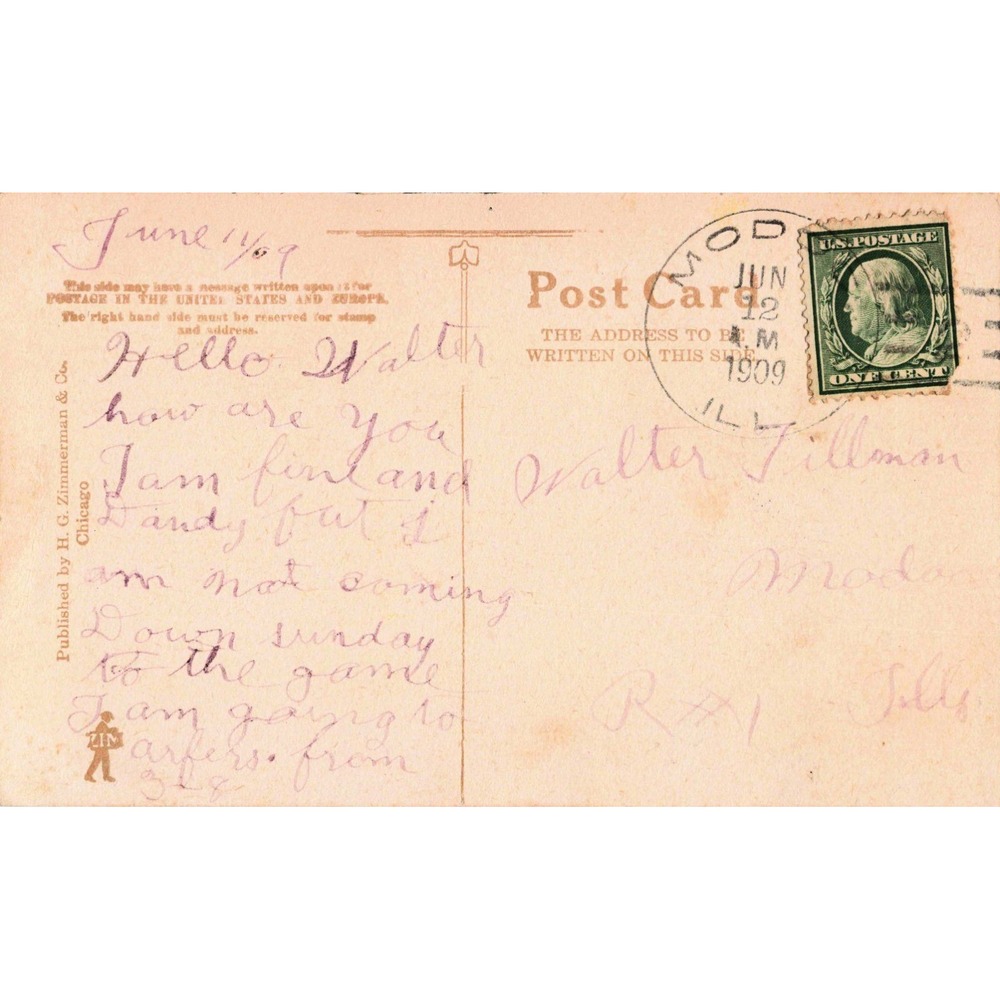 June 11/09
This side may have a message written upon it for
POSTAGE IN THE UNITED STATES AND EUROPE.
The right hand side must be reserved for stamp
and address.
Hello Walter
how are you
I am fine and
Dandy but I
am not coming
Down sunday
to the game
I am going to
from
3-8
Published by H. G. Zimmerman & Co.
Chicago
ZIM
Post Card
THE ADDRESS TO BE
WRITTEN ON THIS SIDE.
JUN
12
A.M
1909
ILL
U.S. POSTAGE
ONE CENT
Walter Tillman
R #1 Ills